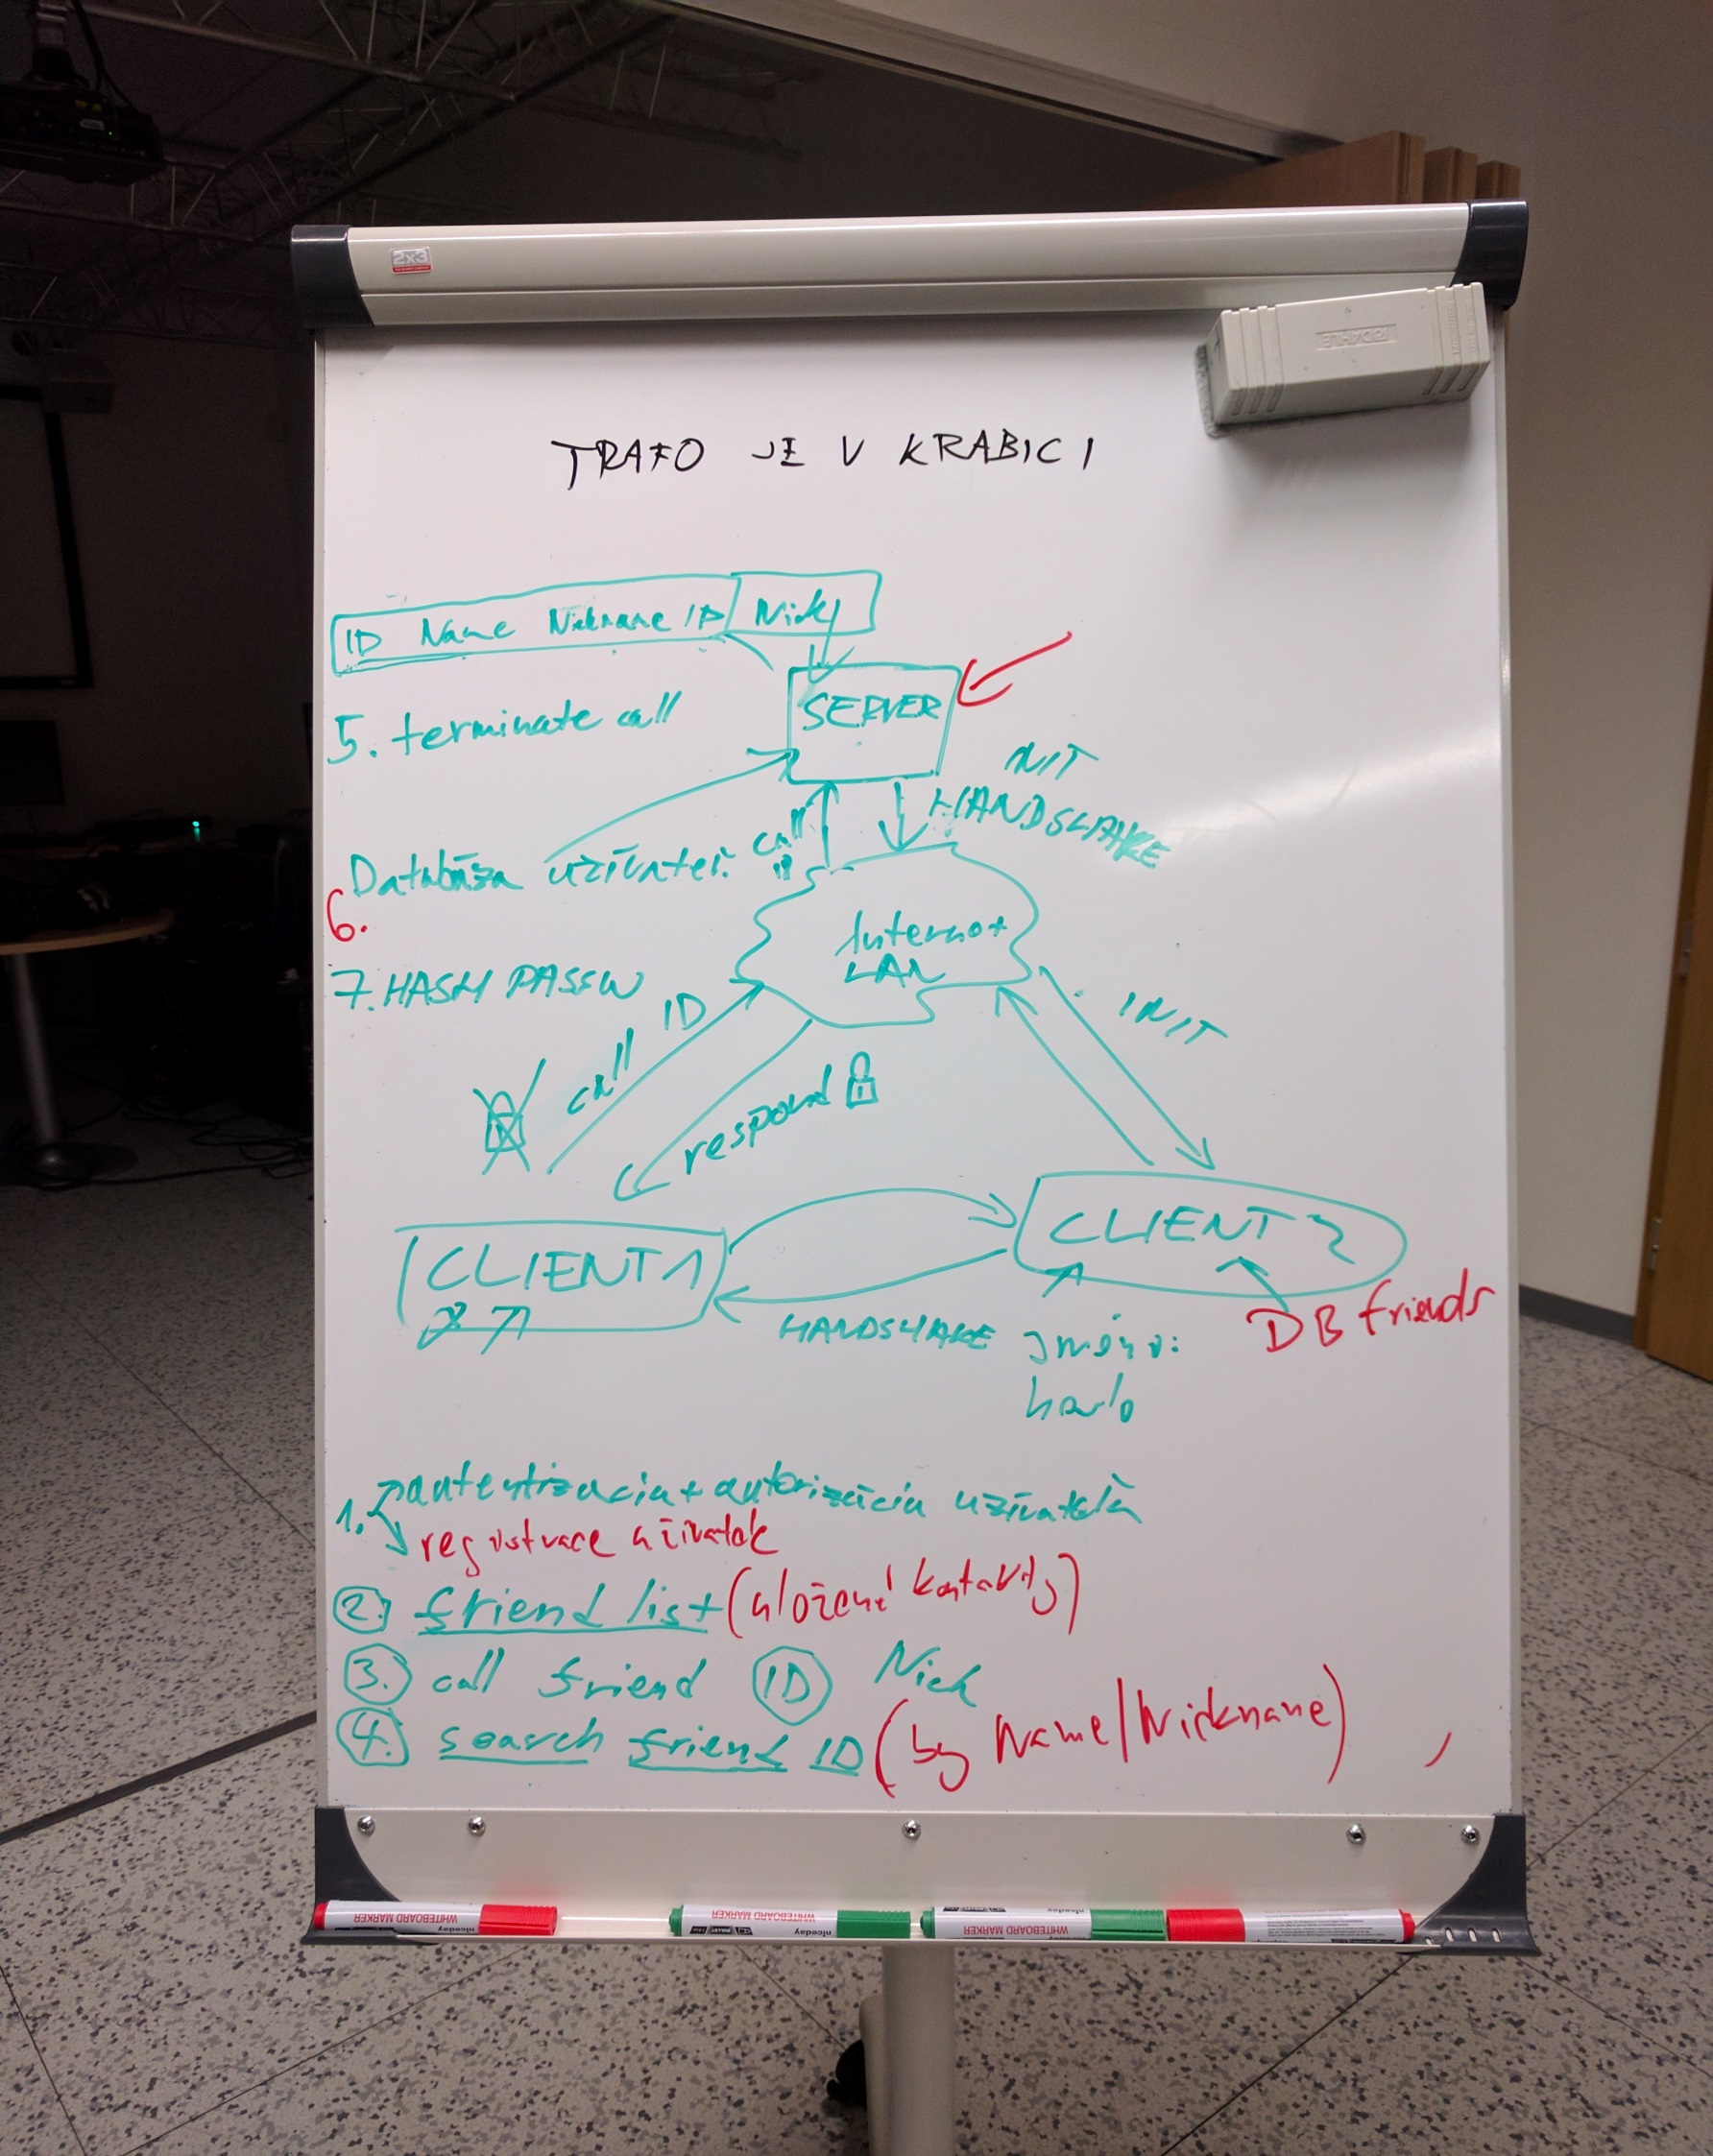 2x3
DAHLE
TRAFO JE V KRABICI
ID Name Nickname ID Nick
SERVER
5. terminate call
INIT
HANDSHAKE
call
Databáza uživateľ
6.
Internet
LAN
7. HASH PASSW
ID
call
INIT
respond
CLIENT 1
CLIENT 2
HANDSHAKE
DB friends
jméno:
heslo
1. autentizacia + autorizácia uživatela
registrace uživatele
2. friend list (uložení kontakty)
3. call friend ID Nick
4. search friend ID (by Name/Nickname)
WHITEBOARD MARKER niceday
WHITEBOARD MARKER niceday
WHITEBOARD MARKER niceday